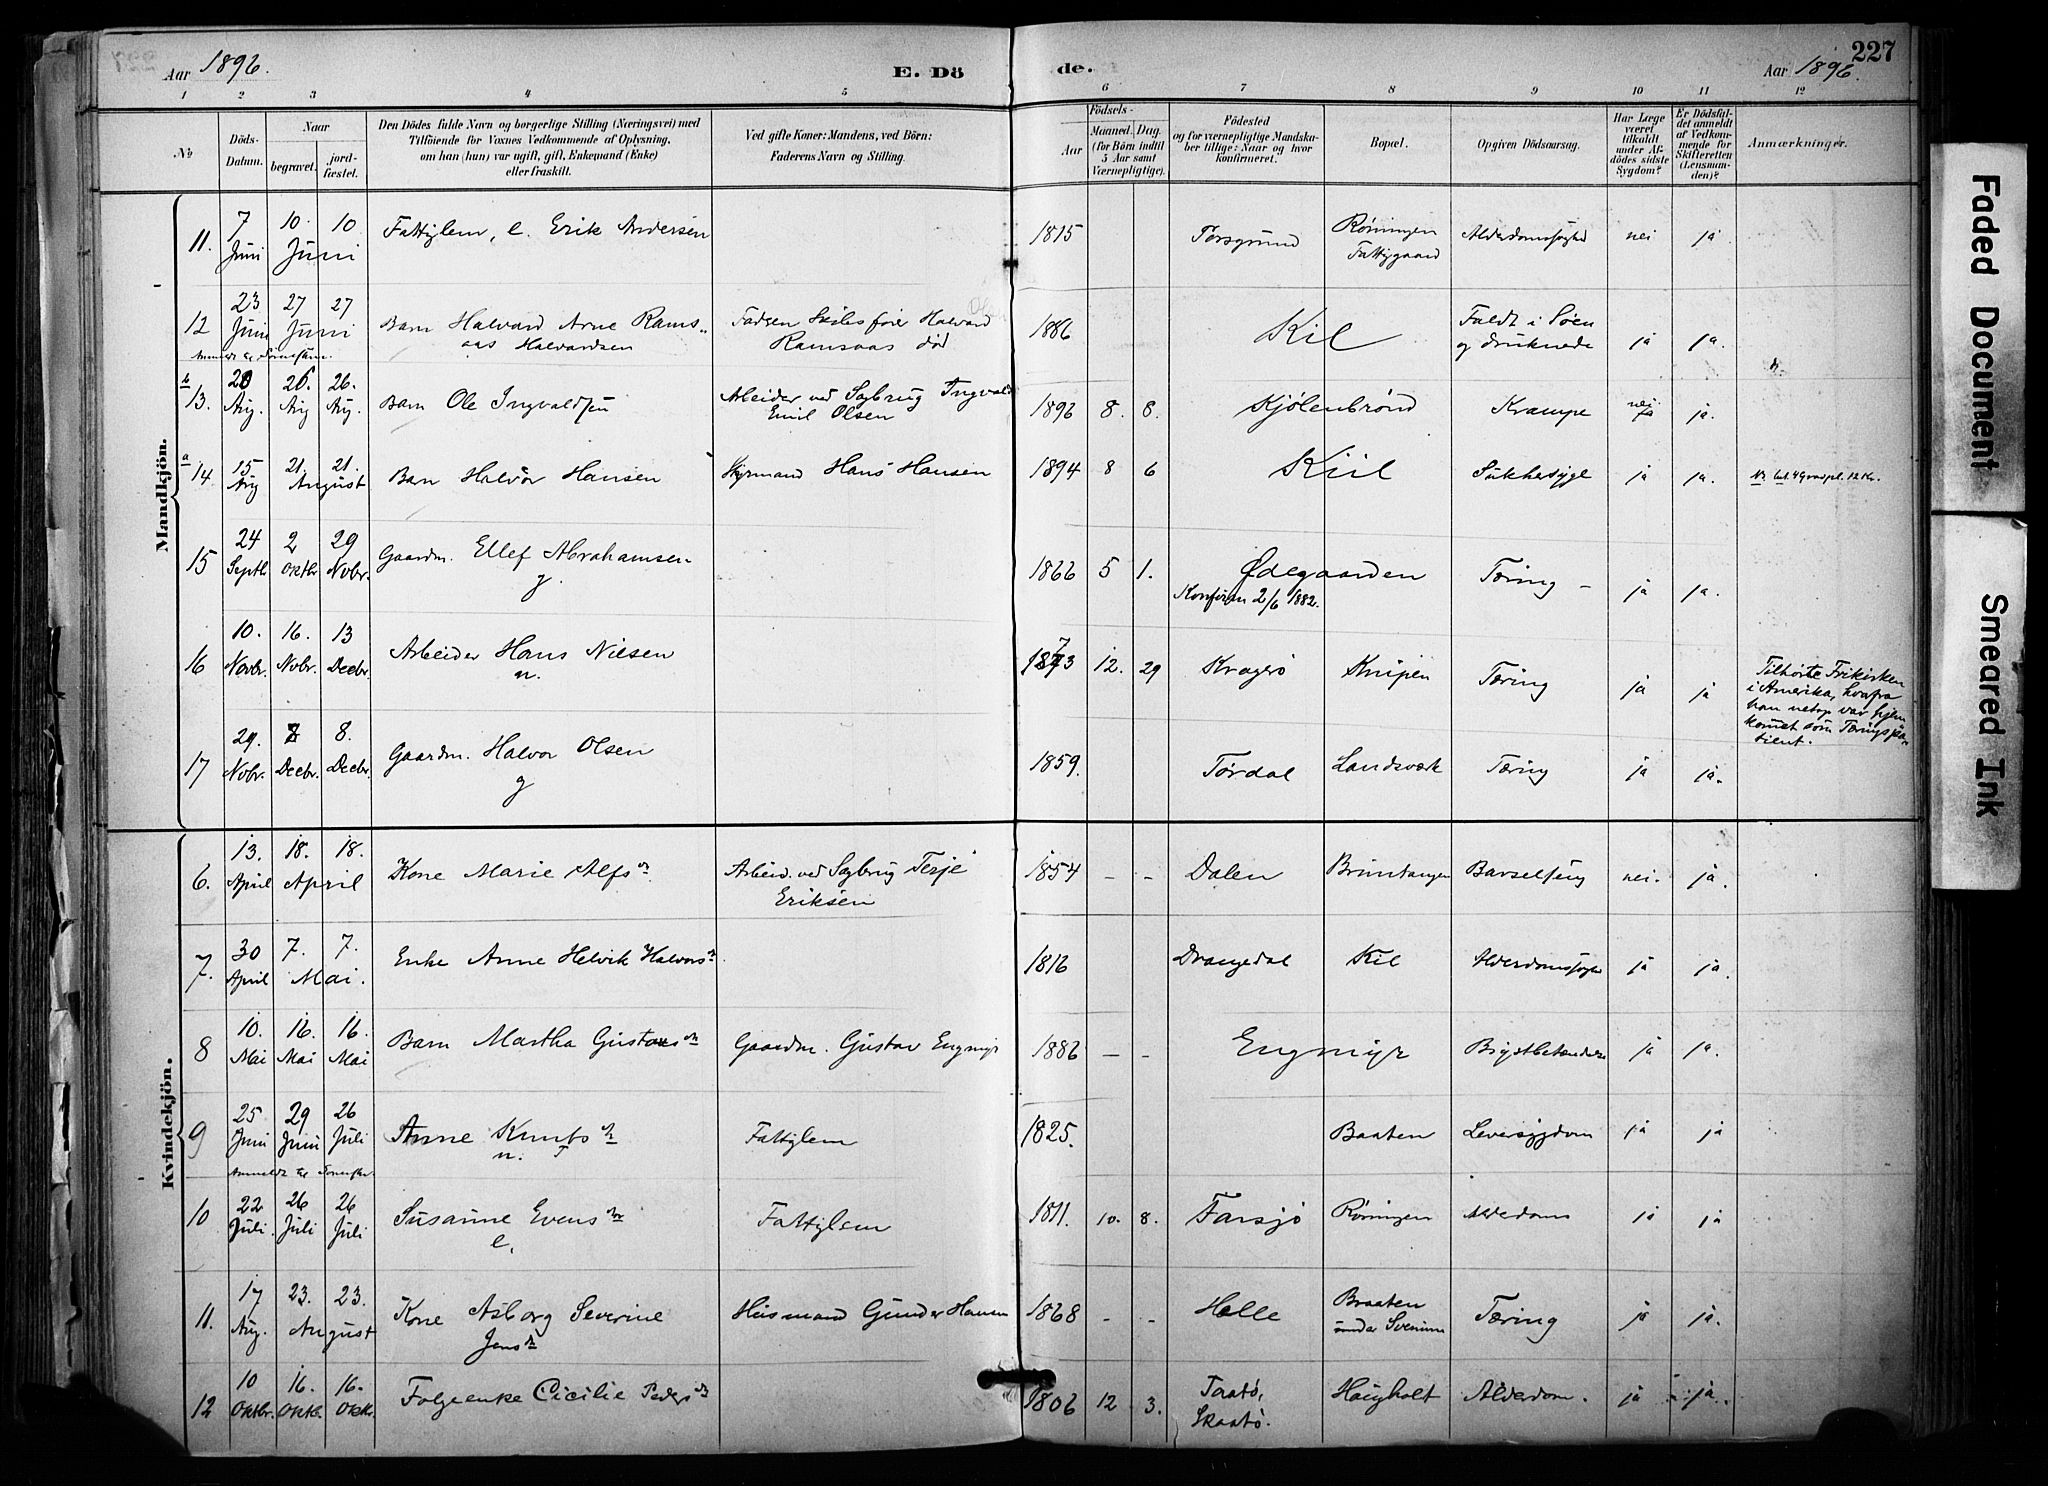 Aar 1896.
E. Döde.
Aar 1896.
227
1 2 3 4 5 6 7 8 9 10 11 12
No
Döds-Datum.
Naar
begravet.
jord-fæstet.
Den Dödes fulde Navn og borgerlige Stilling (Næringsvei) med
Tilföiende for Voxnes Vedkommende af Oplysning,
om han (hun) var ugift, gift, Enkemand (Enke)
eller fraskilt.
Ved gifte Koner: Mandens, ved Börn:
Faderens Navn og Stilling.
Födsels-
Aar
Maaned. Dag.
(for Börn indtil
5 Aar samt
Værnepligtige).
Födested
og for værnepligtige Mandska-
ber tillige: Naar og hvor
konfirmeret.
Bopæl.
Opgiven Dödsaarsag.
Har Læge
været
tilkaldt
under Af-
dödes sidste
Sygdom?
Er Dödsfal-
det anmeldt
af Vedkom-
mende for
Skifteretten
(Lensman-
den)?
Anmærkninger.
Mandkjön.
11. 7 Juni 10. 10 Juni Fattiglem, e. Erik Andersen 1815 Porsgrund Röiningen Fattiggaard Alderdomssvaghed nei ja.
12 23 Juni 27 27 Juni Barn Halvard Arne Rams-aas Halvardsen Faderen Skibsfører Halvard Ramsaas død 1886 Kil Faldt i Söen og druknede ja ja.
b 13. 20 Aug. 26. Aug 26. Aug. Barn Ole Ingvaldsen Arbeider ved Sagbrug Ingvald Emil Olsen 1896 8. 8. Kjölenbrönd Krampe nei ja.
a 14 15 Aug 21. 21. August Barn Halvor Hansen Styrmand Hans Hansen 1894 8 6 Kiil Sukkersyge ja ja.
15 24 Septbr 2 Oktbr 29 Novbr. Gaardm. Ellef Abrahamsen g. 1866 5 1. Ødegaarden Konfirm 2/6 1882. Tæring - ja ja.
16 10. Novbr. 16. Novbr. 13 Decbr. Arbeider Hans Nilsen n. 1873 12. 29 Kragerö Knipen Tæring ja ja Tilhörte Frikirken
i Amerika, hvorfra
han netop var hjem
kommet som Tæringspa-
tient.
17 29. Novbr. 8 Decbr. 8. Decbr. Gaardm. Halvor Olsen g 1859. Tördal Landsværk Tæring ja ja.
Kvindekjön.
6. 13. April 18. 18. April Kone Marie Alfsdr. Arbeid. ved Sagbrug Terje Eriksen 1854 - - Dalen Bruntangen Barselseng nei. ja.
7. 30 April 7. 7. Mai. Enke Anne Helvik Halvorsdr 1816 Drangedal Kil Alderdomssvaghed ja ja.
8 10. Mai 16. Mai 16. Mai Barn Martha Gustavsdr Gaardm. Gustav Engmyr 1886 - - Engmyr Brystbetændelse ja ja.
9 25 Juni 29 Juni 26 Juli Anne Knutsdr n. Fattiglem 1825. Baaten Leversygdom ja ja
10 22 Juli. 26 Juli 26 Juli Susanne Evensdr e. Fattiglem 1811. 10. 8. Farsjö Röiningen Alderdom ja ja
11. 17 Aug. 23. 23. August Kone Asborg Severine Jensdr Husmand Gunder Hansen 1868 - - Helle Braaten under Svenum Tæring ja ja.
12 10 Oktbr. 16. Oktb. 16. Oktbr. Folgeenke Cicilie Pedersdr 1806 12 3. Taatö, Skaatö. Haugholt Alderdom. ja ja.
Faded Document
Smeared Ink